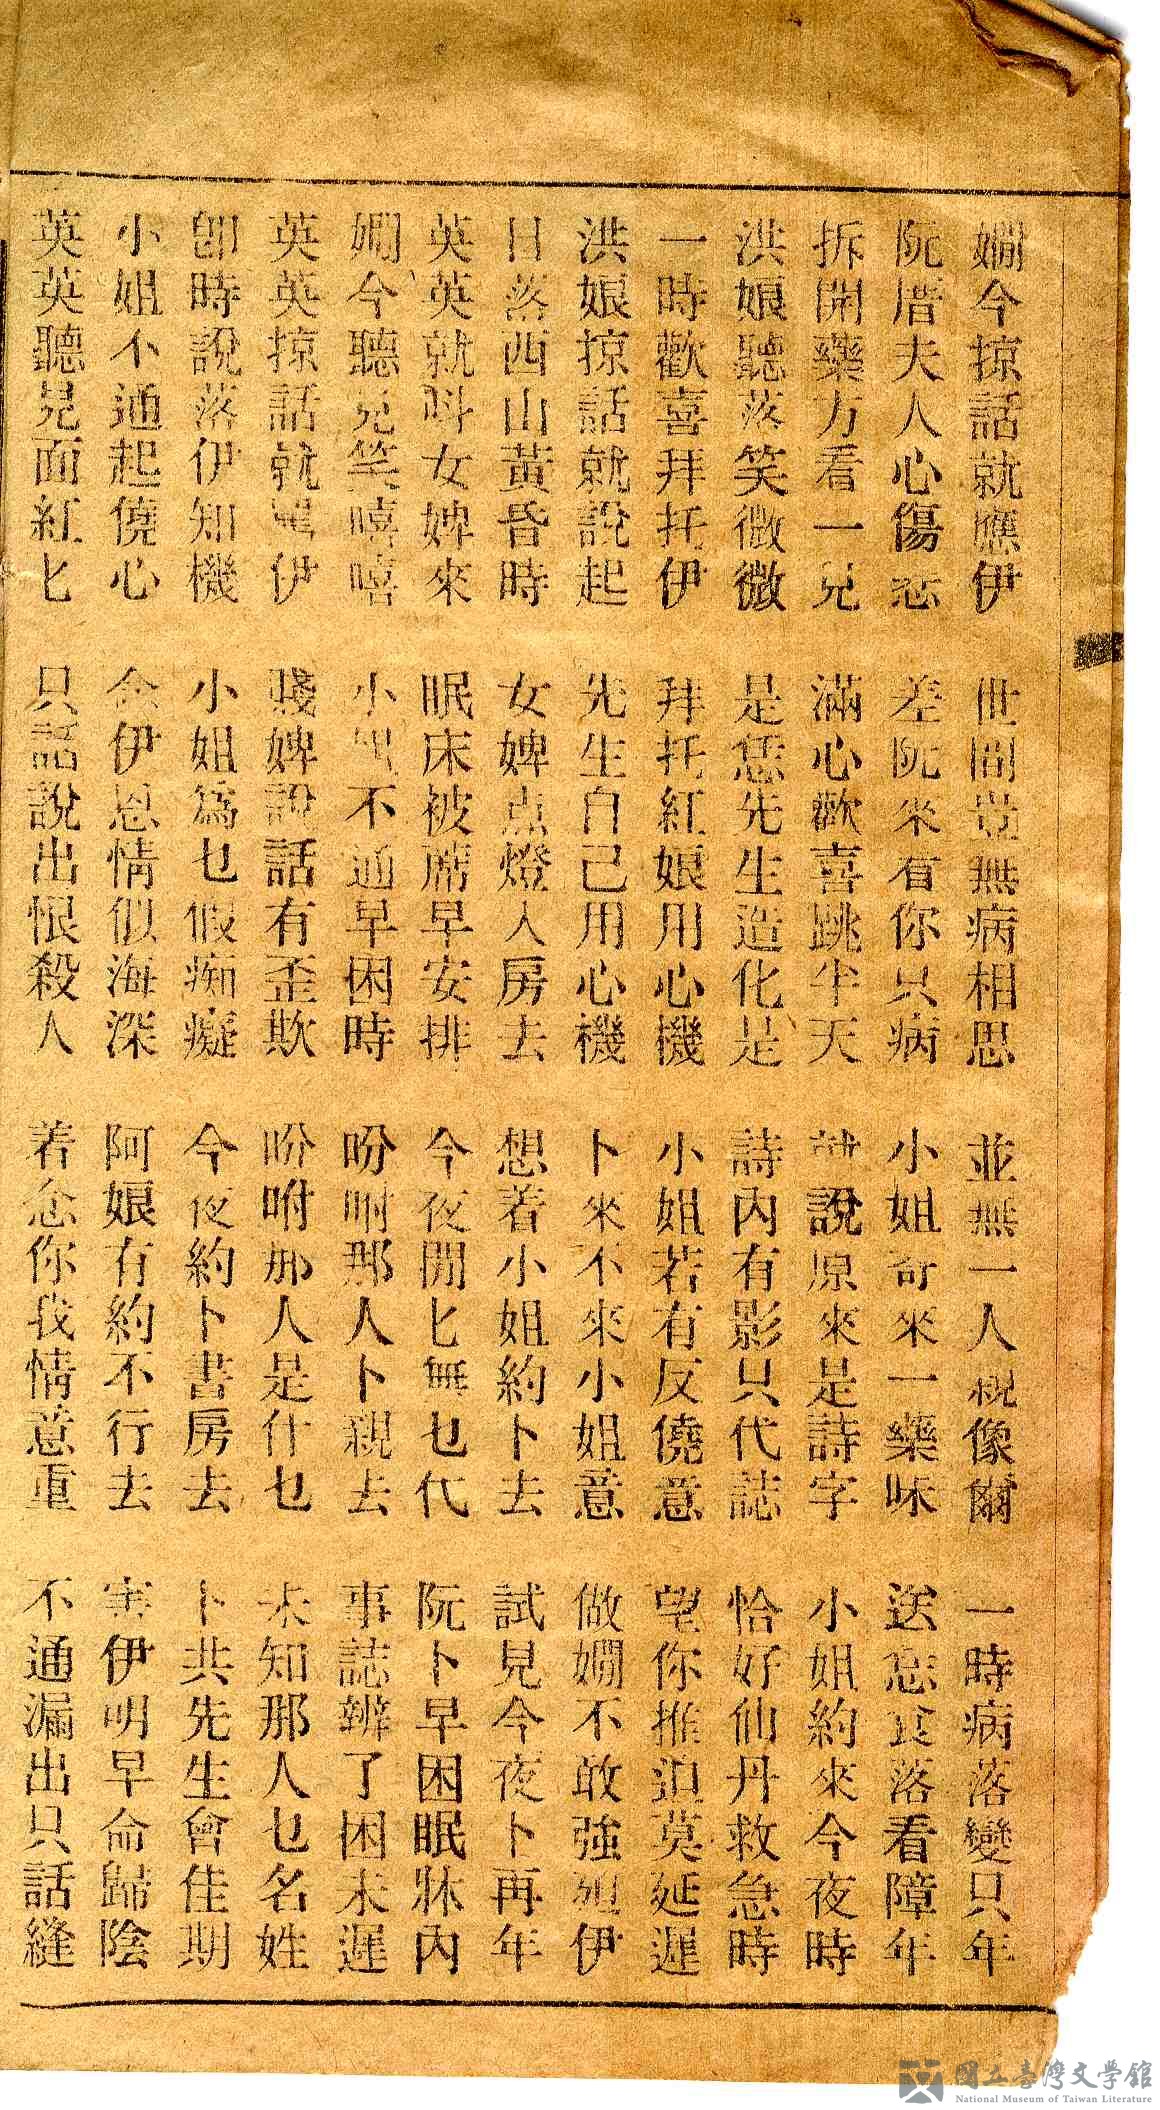 嫺今掠話就應伊 世間豈無病相思 並無一人親像爾 一時病落變只年
阮厝夫人心傷悲 差阮來看你只病 小姐寄來一藥味 送忘食落看障年
拆開藥方看一見 滿心歡喜跳半天 就說原來是詩字 小姐約來今夜時
洪娘聽落笑微微 是恁先生造化是 詩內有影只代誌 恰好仙丹救急時
一時歡喜拜托伊 拜托紅娘用心機 小姐若有反僥意 望你推迫莫延遲
洪娘掠話就說起 先生自己用心機 卜來不來小姐意 做嫺不敢強迫伊
日落西山黃昏時 女婢点燈入房去 想着小姐約卜去 試見今夜卜再年
英英就呌女婢來 眠床被蓆早安排 今夜閒匕無乜代 阮卜早困眠牀內
嫺今聽見笑嘻嘻 小姐不通早困時 吩咐那人卜親去 事誌辨了困未遲
英英掠話就罵伊 賤婢說話有歪欺 吩咐那人是什乜 未知那人乜名姓
卽時說落伊知機 小姐爲乜假痴癡 今夜約卜書房去 卜共先生會佳期
小姐不通起僥心 念伊恩情似海深 阿娘有約不行去 害伊明早命歸陰
英英聽見面紅匕 只話說出恨殺人 若念你我情意重 不通漏出只話縫
國立臺灣文學館
National Museum of Taiwan Literature